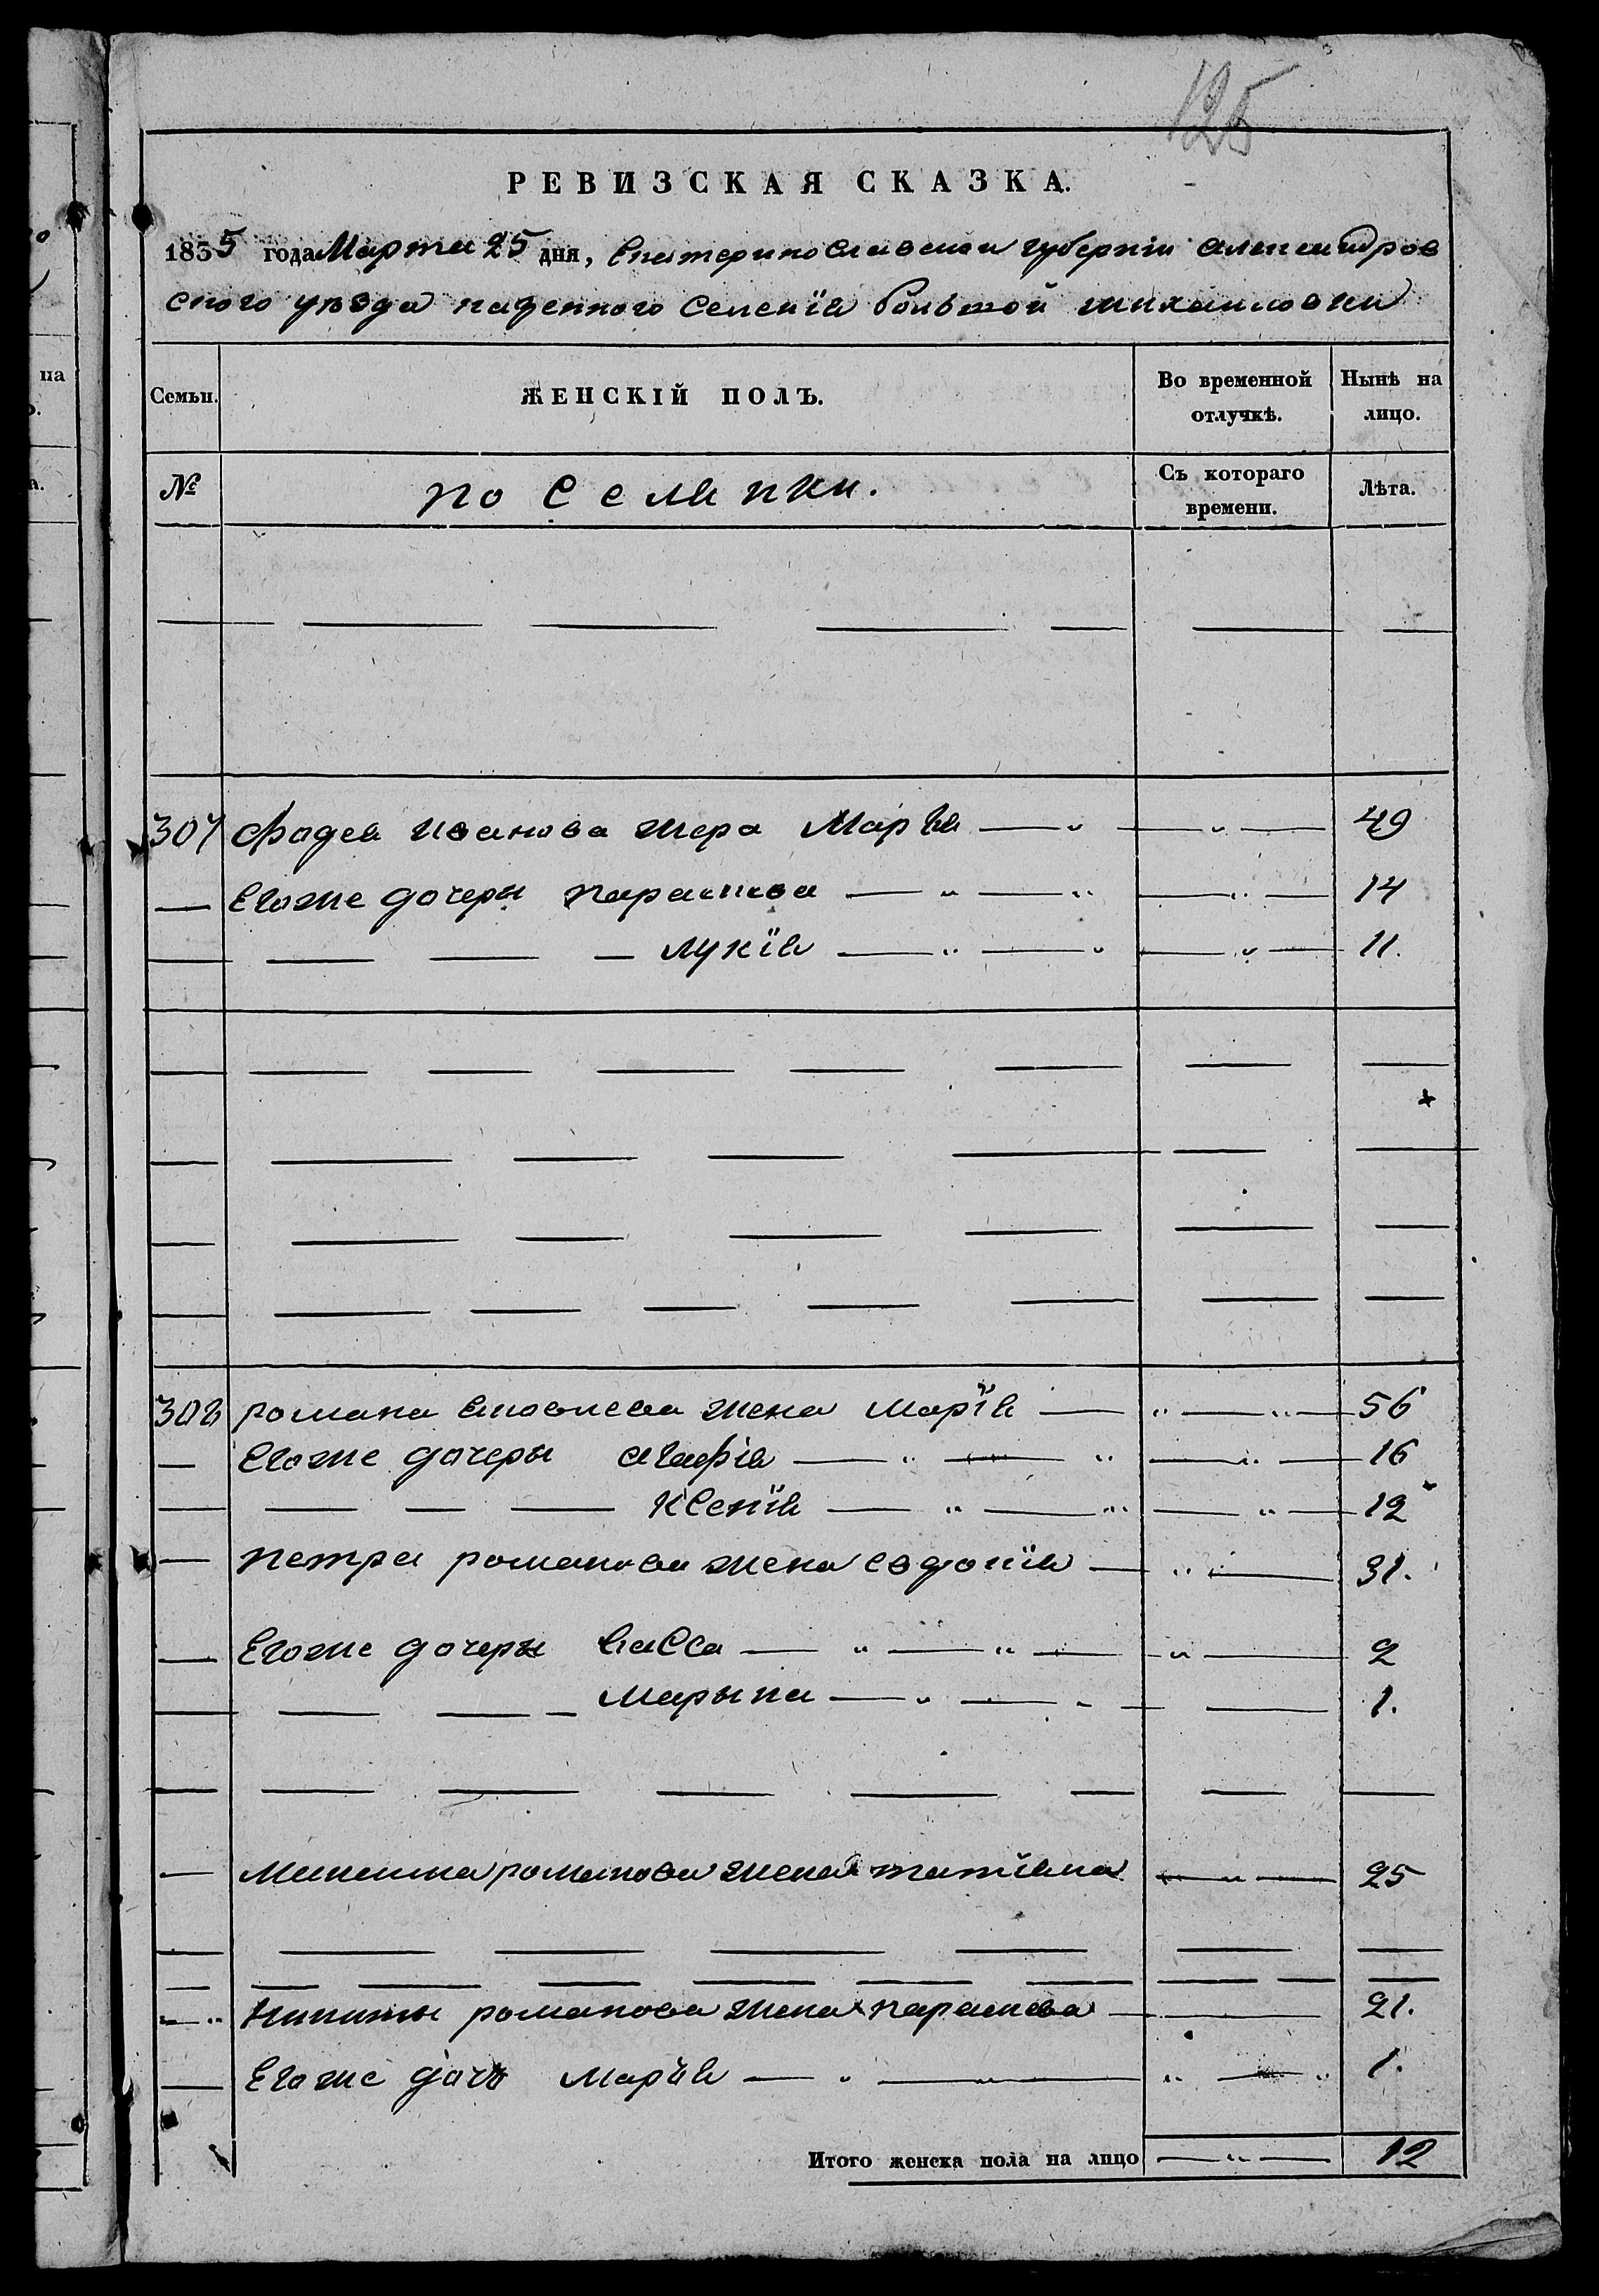 125
РЕВИЗСКАЯ СКАЗКА.
1835 года Марта 25 дня, Екатеринославской губернiи Александров
ского уѣзда казенного Селенiя большой михаиловки
Семьи. ЖЕНСКIЙ ПОЛЪ. Во временной отлучкѣ. Нынѣ на лицо.
№ поселяпки. Съ котораго времени. Лѣта.
307 Фадея иванова жера Марїя 49
Егоже дочеры параскова 14
лукїя 11.
308 романа жена марїя 56
Егоже дочеры агафiя 16
Ксенїя 12
петра романова жена евдокїя 31.
Егоже дочеры васса 2
Марына 1.
романова жена татїяна 25
Никиты романова жена параскева 21.
Егоже дочь Марїя 1.
Итого женска пола на лицо 12
на